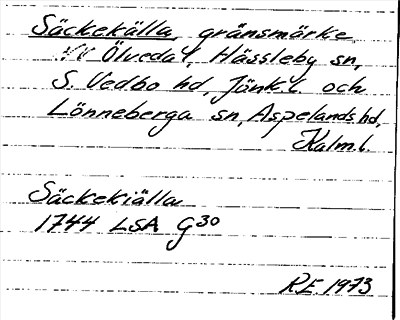 Säckekälla, gränsmärke
NV Ölvedal, Hässleby sn,
S. Vedbo hd, Jönk.l. och
Lönneberga sn, Aspelands hd,
Kalm.l.
Säckekiälla
1744 LSA G30
R.E. 1973